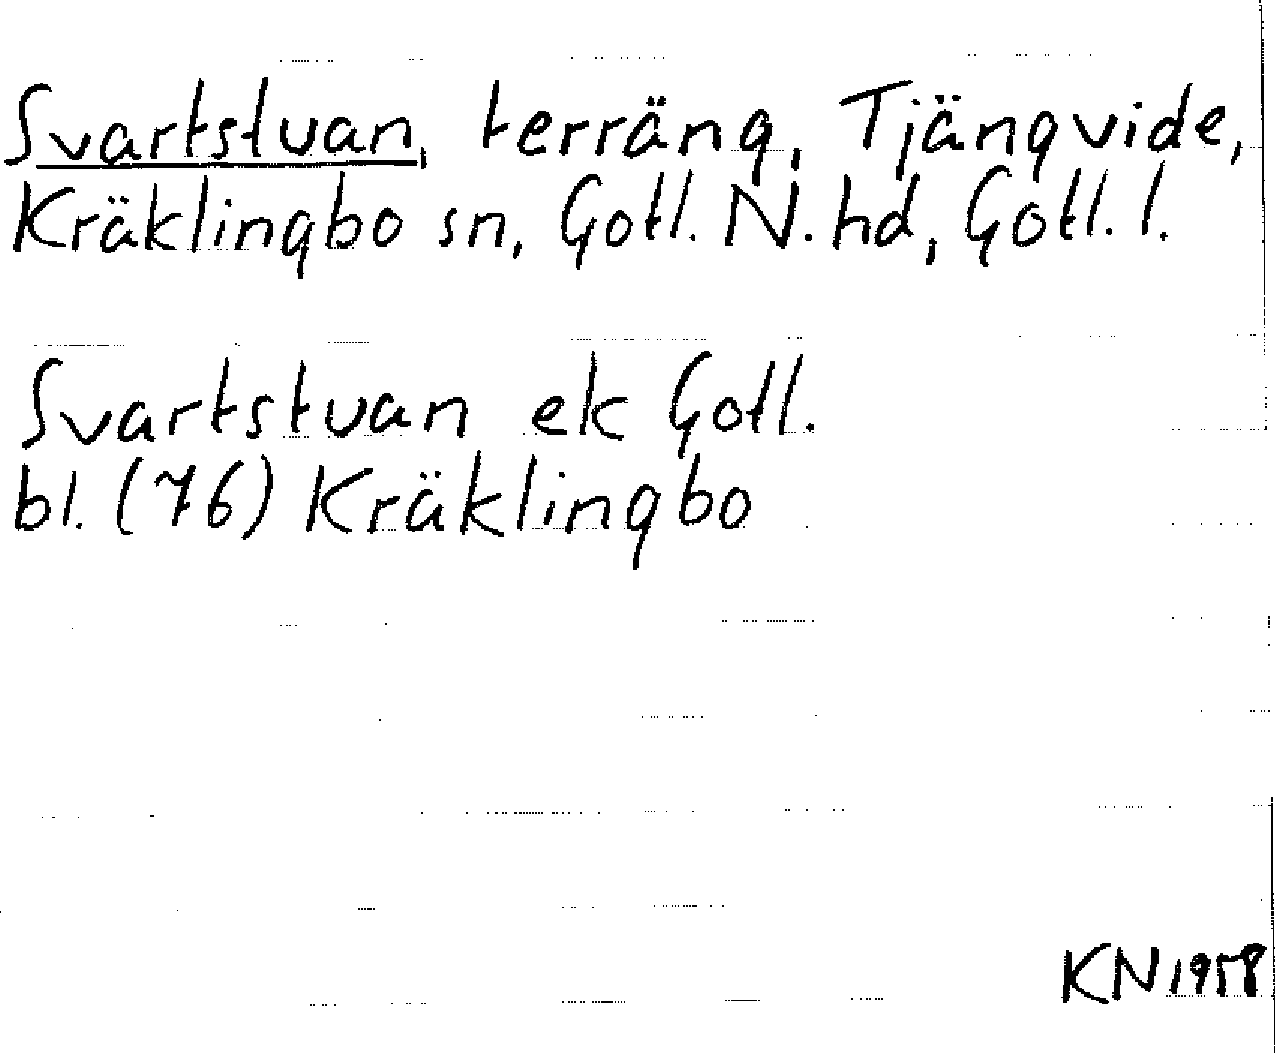 Svartstuan, terräng, Tjängvide,
Kräklingbo sn, Gotl. N. hd, Gotl. l.
Svartstuan ek Gotl.
bl. (76) Kräklingbo
KN 1958